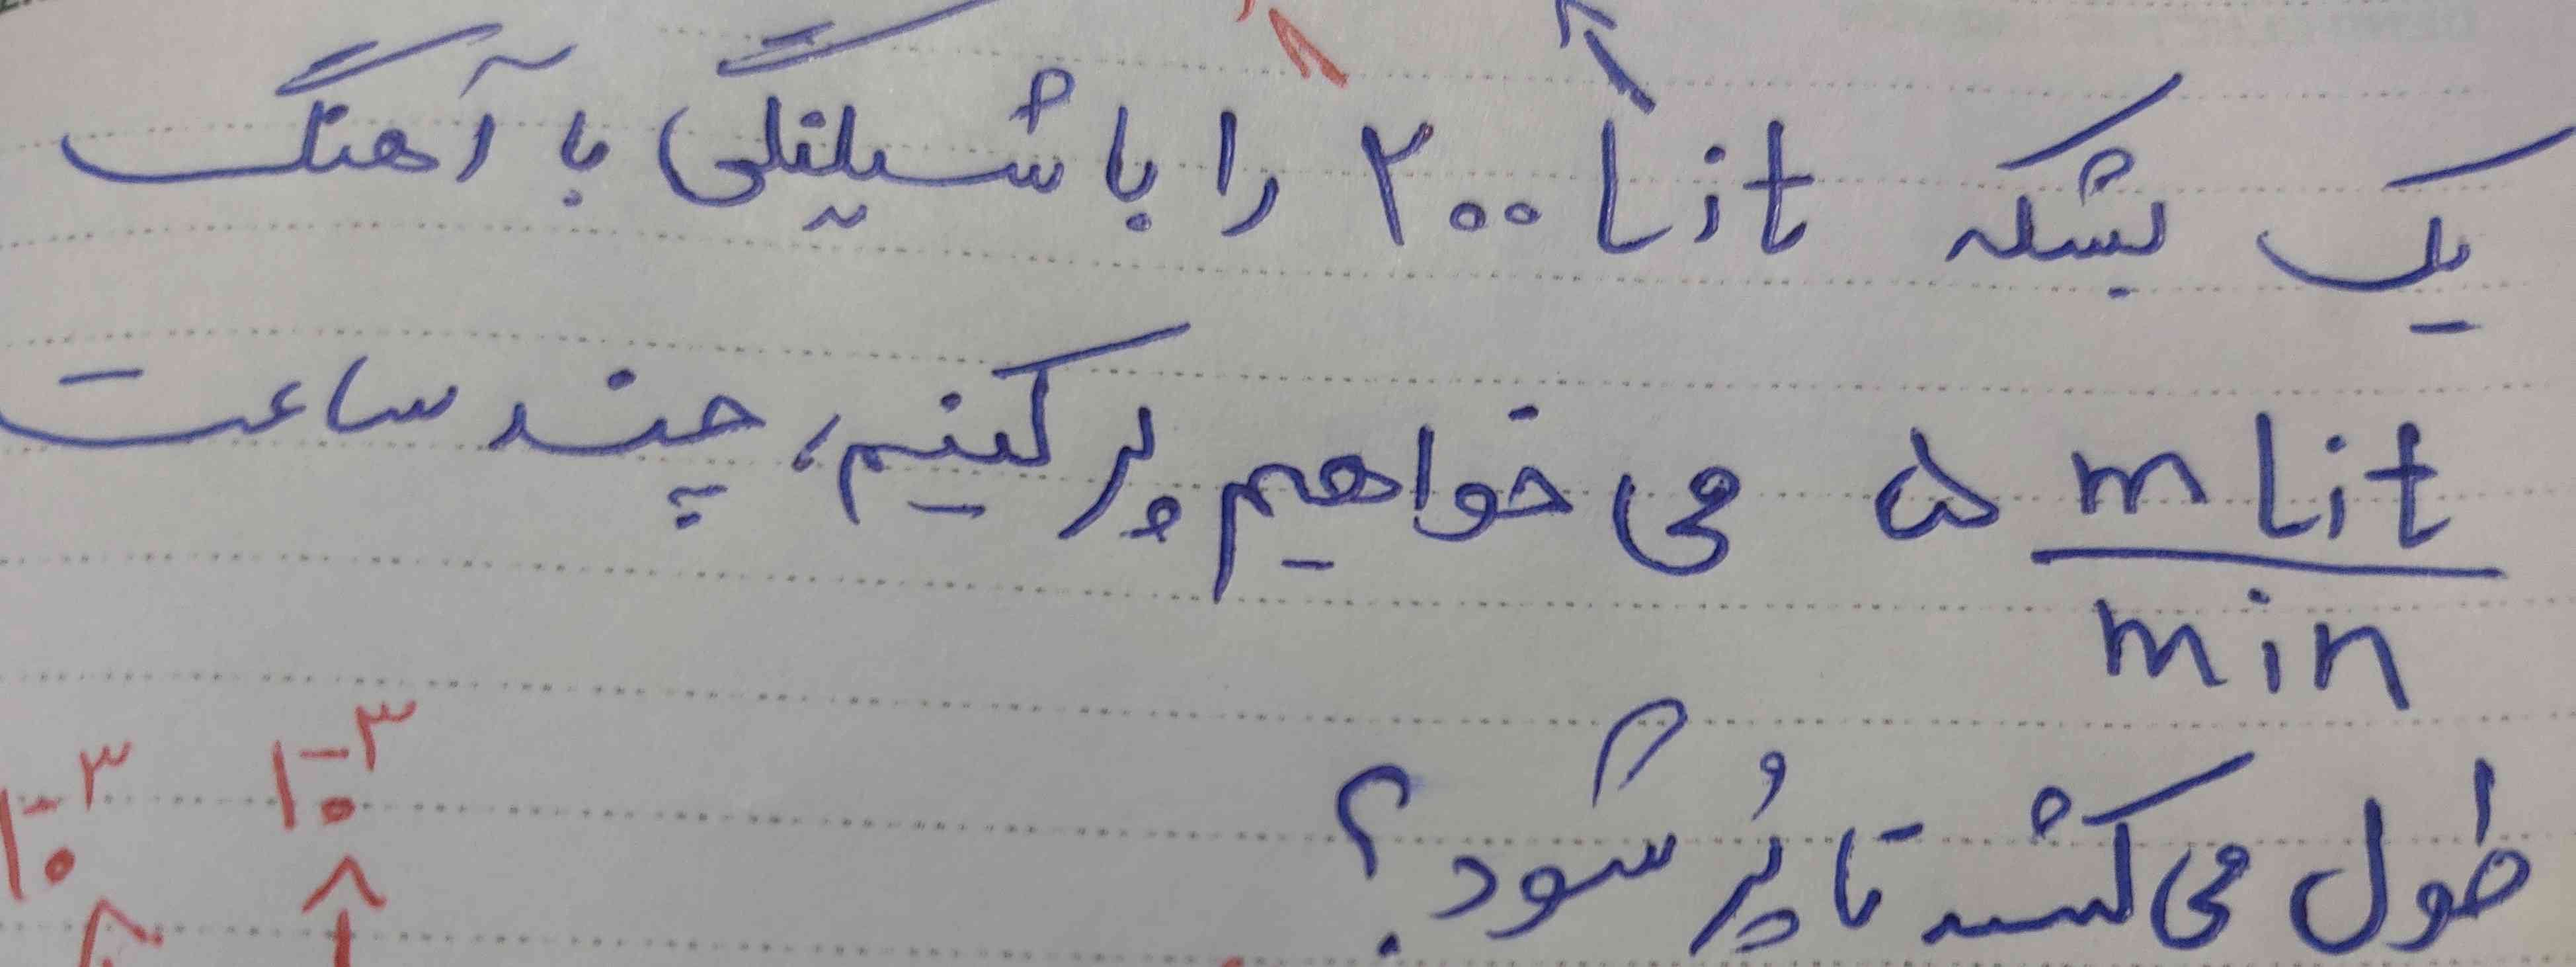 یک بشکه ۲۰۰ Lit را با شیلنگی با آهنگ
۵ mLit/min می خواهیم پر کنیم، چند ساعت
طول می کشد تا پُر شود؟
۱۰^-۳ ۱۰^-۳